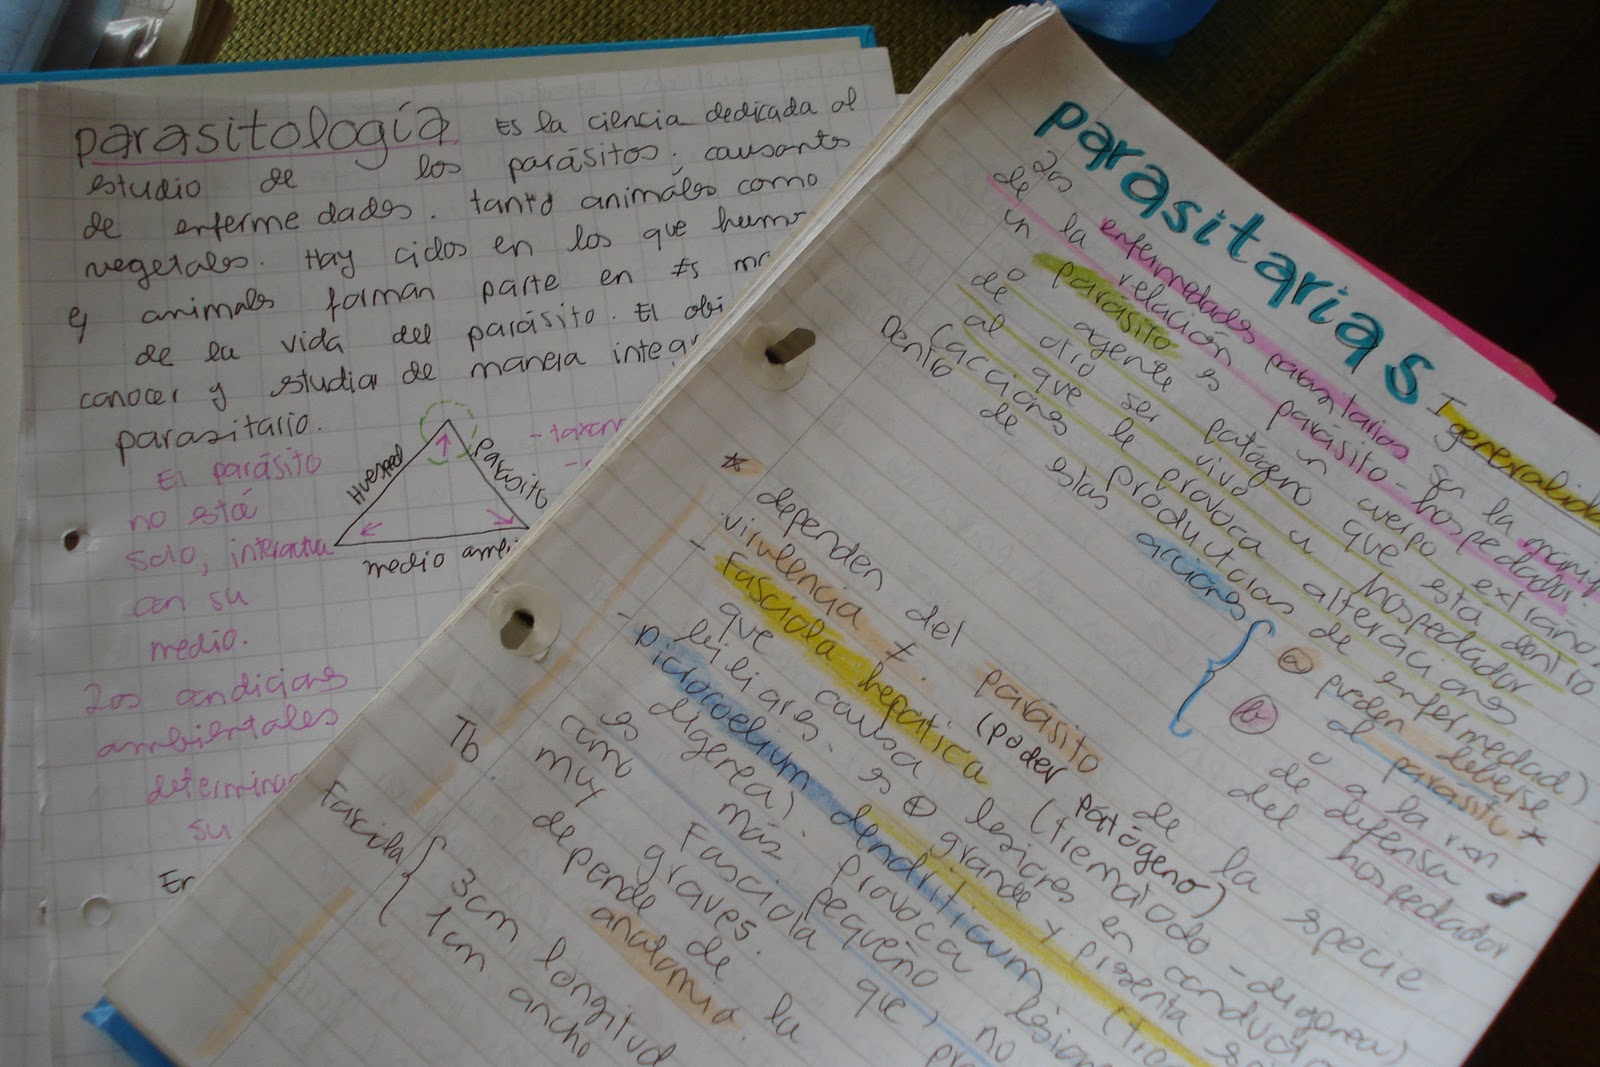 parasitología Es la ciencia dedicada al
estudio de los parásitos. causantes
de enfermedades. tanto animales como
vegetales. Hay ciclos en los que hum
y animales forman parte en Es
de la vida del parásito. El obj
conocer y estudiar de maneja integr
parasitario.
El parásito
no está
solo, interactua
con su
medio.
Huesped
Parásito
medio ambi
Los condicions
ambientales
determina
su
En
parasitarias I generalida
Los enfermedades parasitarias son la
de la relación parásito-hospedador.
un parásito es un cuerpo extraño
o agente patógeno que está dentro
de otro ser vivo u hospedador
al que le provoca alteraciones
(acciones productoras de enfermedad)
Dentro de estas acciones {
a pueden deberse
al parásito *
b o a la rxn
de defensa
del hospedador
* dependen del parásito de la especie
virulencia ≠. (poder patógeno)
- Fasciola hepática (trematodo-digenea)
que causa lesiones en conduct
biliares. es ⊕ grande y presenta
- Dicrocoelium dendriticum (tre
digenea) provoca lesion
es más pequeño
como Fasciola que, no
muy graves.
Tb. depende de la
anatomia.
Fasciola { 3cm longitud
1cm ancho